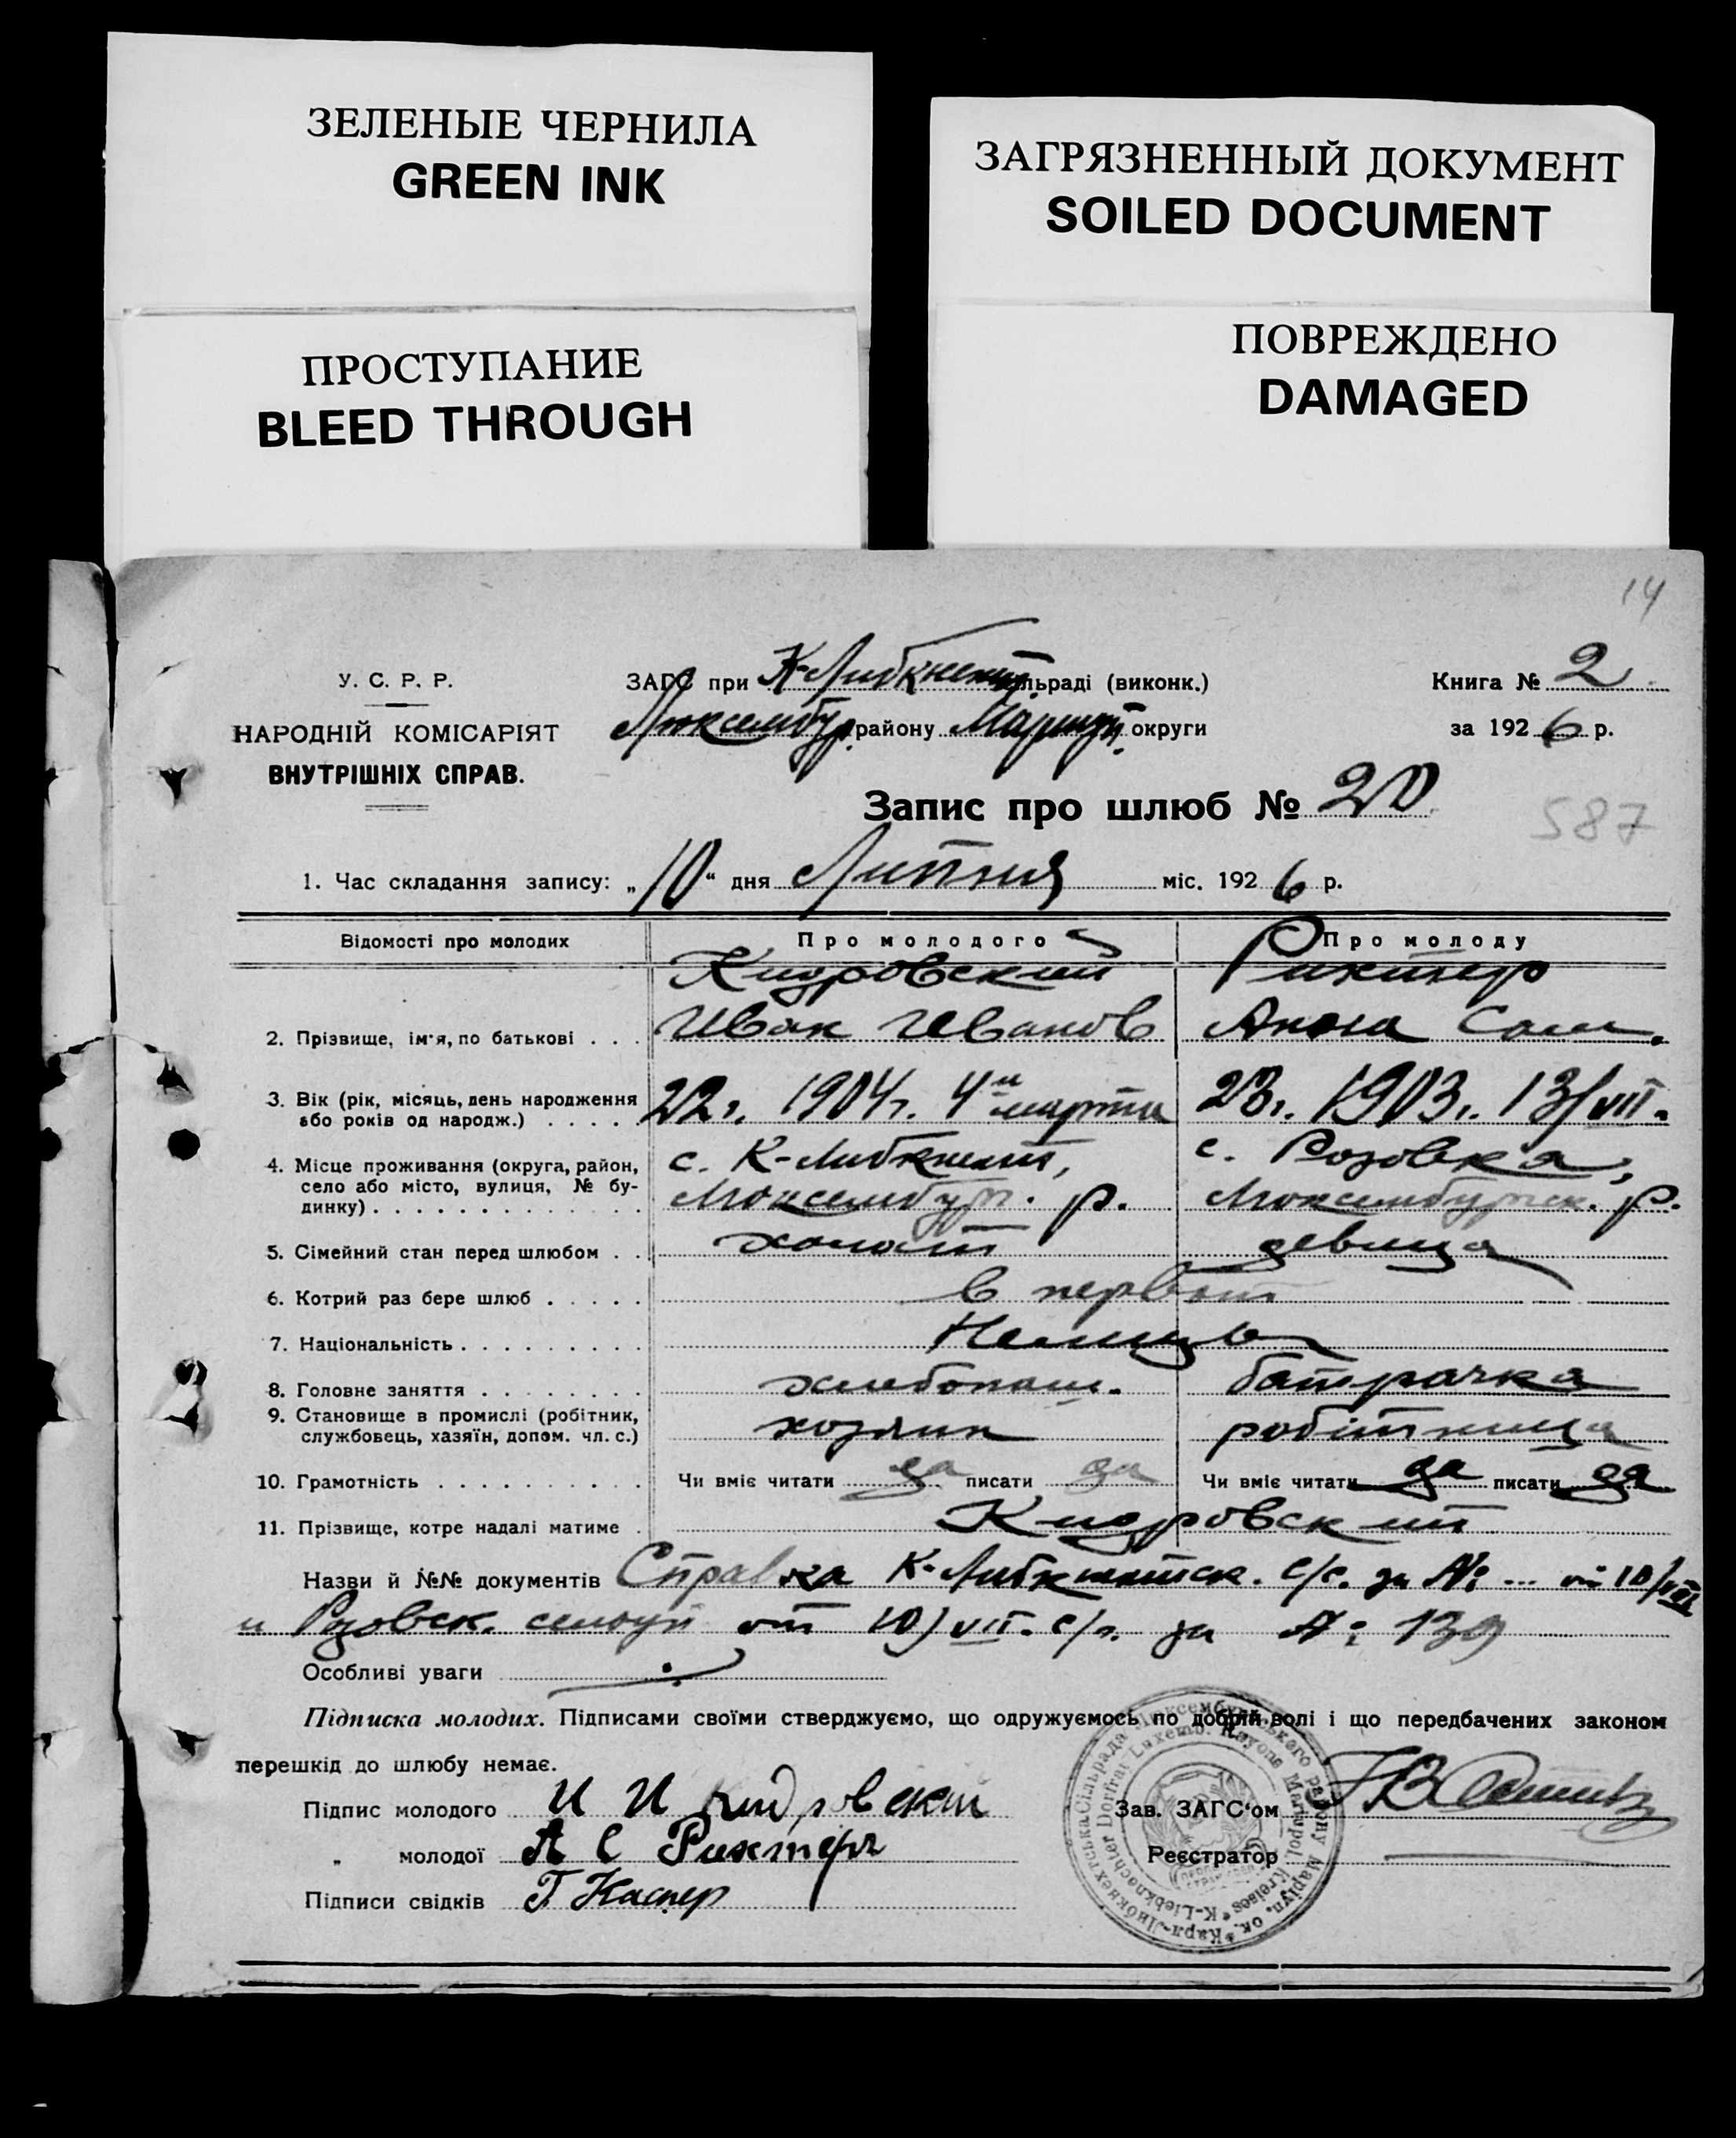 ЗЕЛЕНЫЕ ЧЕРНИЛА
GREEN INK
ЗАГРЯЗНЕННЫЙ ДОКУМЕНТ
SOILED DOCUMENT
ПРОСТУПАНИЕ
BLEED THROUGH
ПОВРЕЖДЕНО
DAMAGED
14
У. С. Р. Р.
НАРОДНІЙ КОМІСАРІЯТ
ВНУТРІШНІХ СПРАВ.
ЗАГС при К-Либкнехт. сільраді (виконк.)
Люксембур. району Маріуп. округи
Книга № 2
за 1926 р.
Запис про шлюб № 20
587
1. Час складання запису: „10“ дня Липня міс. 1926 р.
Відомості про молодих Про молодого Про молоду
Кидровский Рихтер
2. Прізвище, ім'я, по батькові . . . Иван Иванов Анна Сам.
3. Вік (рік, місяць, день народження або років од народж.) . . . . 22 г. 1904 г. 4го марта 23 г. 1903 г. 13/VII.
4. Місце проживання (округа, район, село або місто, вулиця, № будинку) . . . с. К-Либкнехт, Люксембург. р. с. Розовка, Люксембургск. р.
5. Сімейний стан перед шлюбом . . холост девица
6. Котрий раз бере шлюб . . . . . в первый
7. Національність . . . . . . . . . Немцы
8. Головне заняття . . . . . . . . хлебопаш. батрачка
9. Становище в промислі (робітник, службовець, хазяїн, допом. чл. с.) хозяин робітница
10. Грамотність . . . . . . . . . . Чи вміє читати да писати да Чи вміє читати да писати да
11. Прізвище, котре надалі матиме . Кидровский
Назви й №№ документів Справка К-Либкнехтск. с/с. за № ... от 10/VII
и Розовск. от 10/VII. с/г. за № 139
Особливі уваги
Підписка молодих. Підписами своїми стверджуємо, що одружуємось по добрій волі і що передбачених законом
перешкід до шлюбу немає.
Підпис молодого И И Кидровский
„ молодої А С Рихтеръ
Підписи свідків Г. Каспер
Зав. ЗАГС'ом
Реєстратор
Карл-Лібкнехтська Сільрада Люксембурзького району Маріуп. ок.
K-Liebknechter Dorfrat Luxemb. Rayons Mariupol. Kreises